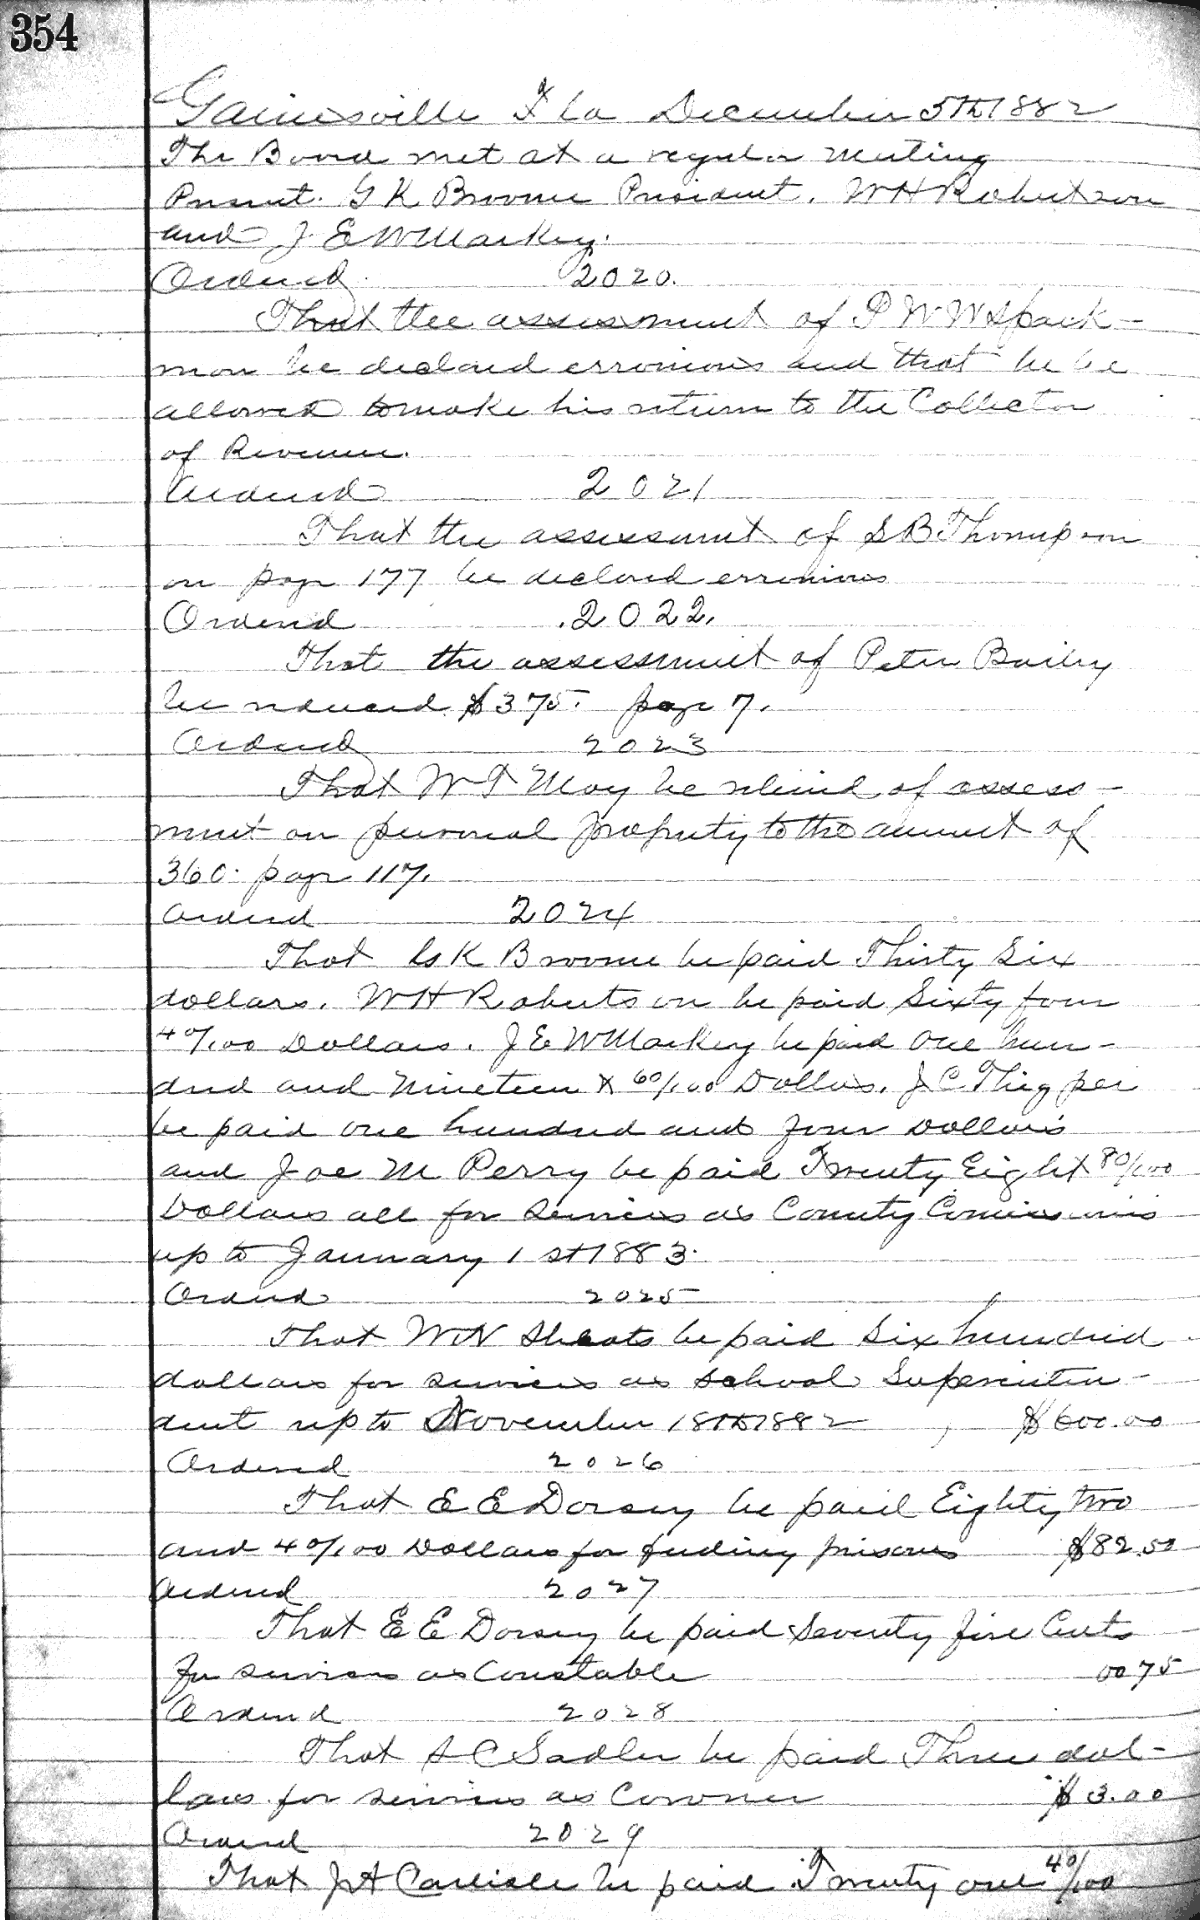 354
Gainesville Fla December 5th 1882
The Board met at a regular meeting
Present. G K Broome President. W H Robertson
and J E W Markey.
Ordered 2020.
That the assessment of P W W Spark-
mon be declared erronious and that he be
allowed to make his return to the Collector
of Revenue.
Ordered 2021
That the assessment of S B Thompson
on page 177 be declared erronious
Ordered .2022.
That the assessment of Peter Bailey
be reduced $375. page 7.
Ordered 2023
That W T May be relieved of assess-
ment on personal property to the amount of
360. page 117.
Ordered 2024
That G K Broome be paid Thirty Six
dollars. W H Robertson be paid Sixty four
40/100 Dollars. J E W Markey be paid One hun-
dred and Nineteen & 60/100 Dollars. J C Thigpen
be paid one hundred and four Dollars
and Joe M Perry be paid Twenty Eight 80/100
Dollars all for services as County
up to January 1st 1883.
Ordered 2025
That W N Sheats be paid Six hundred
dollars for services as School Superinten-
dent up to November 18th 1882 $600.00
Ordered 2026
That E E Dorsey be paid Eighty two
and 40/100 Dollars for feeding prisoners $82.50
Ordered 2027
That E E Dorsey be paid Seventy five Cents
for services as Constable 0075
Ordered 2028
That S C Sadler be paid Three dol-
lars for services as Coroner $3.00
Ordered 2029
That J A Carlisle be paid Twenty one 40/100